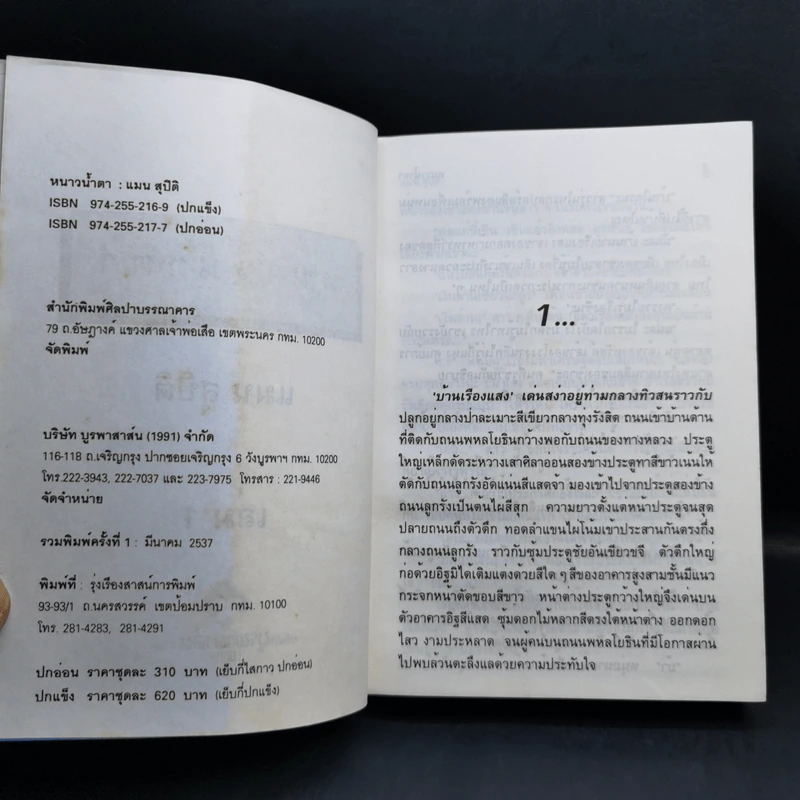 หนาวน้ำตา : แมน สุปิติ
ISBN 974-255-216-9 (ปกแข็ง)
ISBN 974-255-217-7 (ปกอ่อน)
สำนักพิมพ์ศิลปาบรรณาคาร
79 ถ.อัษฎางค์ แขวงศาลเจ้าพ่อเสือ เขตพระนคร กทม. 10200
จัดพิมพ์
บริษัท บูรพาสาส์น (1991) จำกัด
116-118 ถ.เจริญกรุง ปากซอยเจริญกรุง 6 วังบูรพาฯ กทม. 10200
โทร. 222-3943, 222-7037 และ 223-7975 โทรสาร : 221-9446
จัดจำหน่าย
รวมพิมพ์ครั้งที่ 1 : มีนาคม 2537
พิมพ์ที่ : รุ่งเรืองสาสน์การพิมพ์
93-93/1 ถ.นครสวรรค์ เขตป้อมปราบ กทม. 10100
โทร. 281-4283, 281-4291
ปกอ่อน ราคาชุดละ 310 บาท (เย็บกี่ไสกาว ปกอ่อน)
ปกแข็ง ราคาชุดละ 620 บาท (เย็บกี่ปกแข็ง)
1...
'บ้านเรืองแสง' เด่นสง่าอยู่ท่ามกลางทิวสนราวกับ
ปลูกอยู่กลางป่าละเมาะสีเขียวกลางทุ่งรังสิต ถนนเข้าบ้านด้าน
ที่ติดกับถนนพหลโยธินกว้างพอกับถนนของทางหลวง ประตู
ใหญ่เหล็กดัดระหว่างเสาศิลาอ่อนสองข้างประตูทาสีขาวเน้นให้
ตัดกับถนนลูกรังอัดแน่นสีแสดจ้า มองเข้าไปจากประตูสองข้าง
ถนนลูกรังเป็นต้นไผ่สีสุก ความยาวตั้งแต่หน้าประตูจนสุด
ปลายถนนถึงตัวตึก ทอดลำแขนไผ่โน้มเข้าประสานกันตรงกึ่ง
กลางถนนลูกรัง ราวกับซุ้มประตูชัยอันเขียวขจี ตัวตึกใหญ่
ก่อด้วยอิฐมิได้เติมแต่งด้วยสีใด ๆ สีของอาคารสูงสามชั้นมีแนว
กระจกหน้าตัดขอบสีขาว หน้าต่างประตูกว้างใหญ่จึงเด่นบน
ตัวอาคารอิฐสีแสด ซุ้มดอกไม้หลากสีตรงใต้หน้าต่าง ออกดอก
ไสว งามประหลาด จนผู้คนบนถนนพหลโยธินที่มีโอกาสผ่าน
ไปพบล้วนตะลึงแลด้วยความประทับใจ